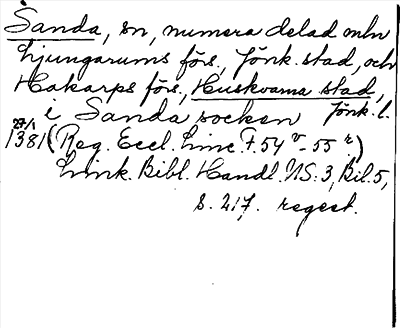 Sanda, sn, numera delad mln
Ljungarums förs, Jönk. stad, och
Hakarps förs, Huskvarna stad,
i Sanda socken Jönk. l.
27/1
1381 (Reg. Eccl. Linc. F. 54 v - 55 r.)
Link. Bibl. Handl. NS: 3, Bil. 5,
s. 217. regest.